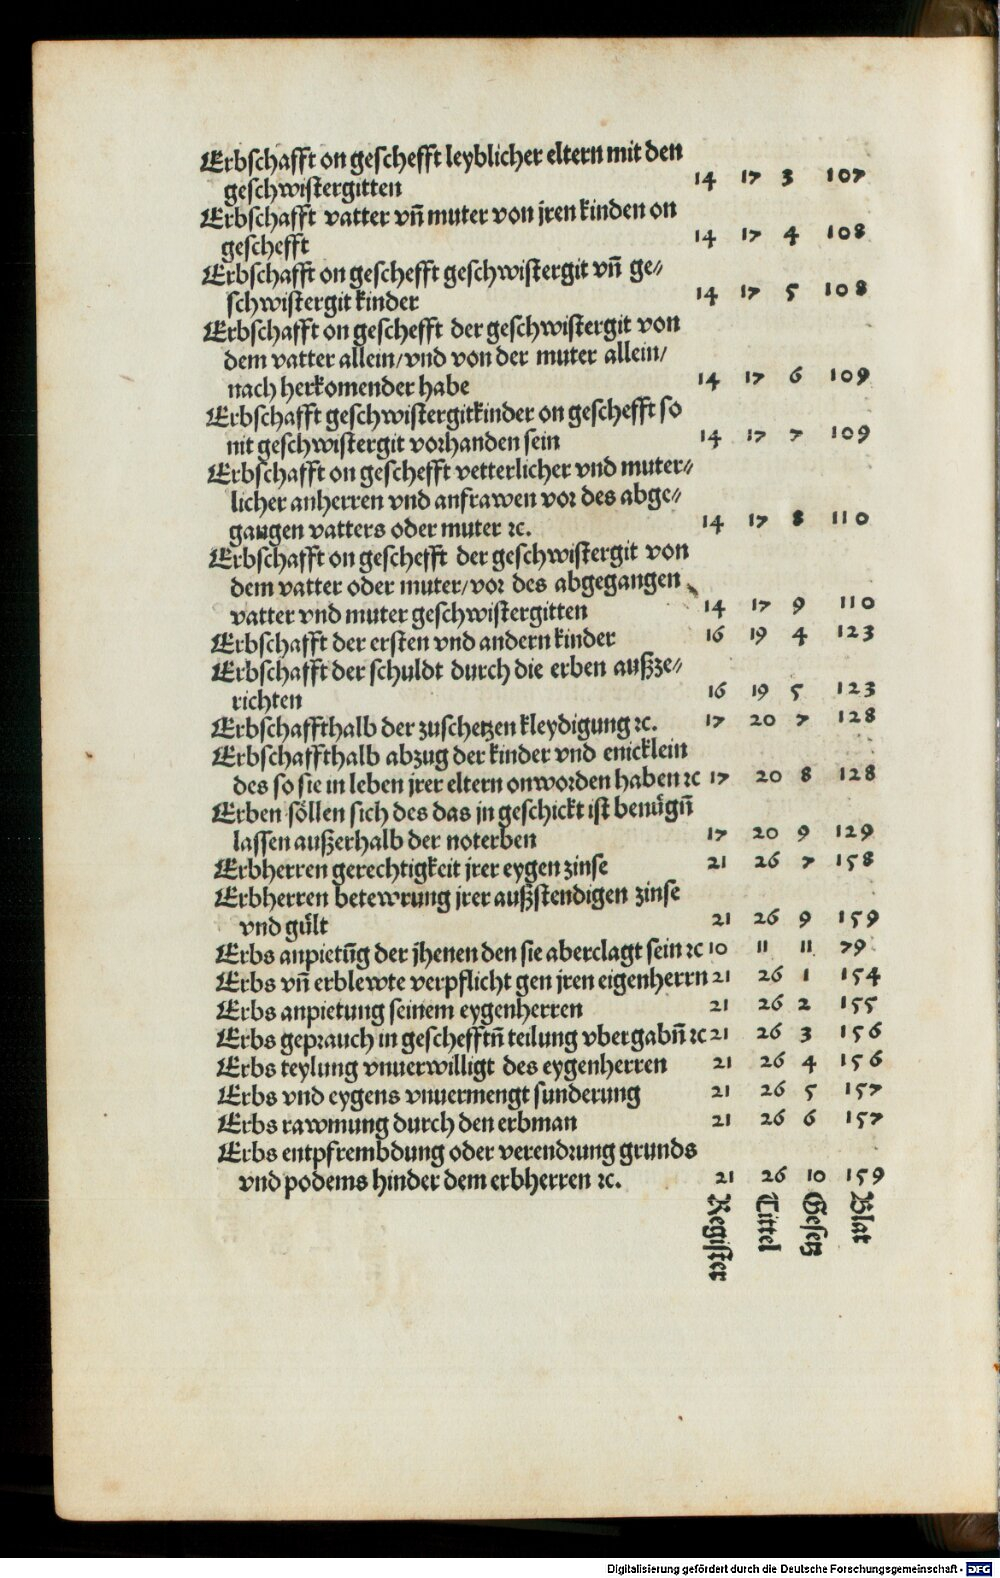 Erbschafft on geschefft leyblicher eltern mit den
geschwistergitten 14 17 3 107
Erbschafft vatter vñ muter von jren kinden on
geschefft 14 17 4 108
Erbschafft on geschefft geschwistergit vñ ge⸗
schwistergit kinder 14 17 5 108
Erbschafft on geschefft der geschwistergit von
dem vatter allein/vnd von der muter allein/
nach herkomender habe 14 17 6 109
Erbschafft geschwistergitkinder on geschefft so
nit geschwistergit vorhanden sein 14 17 7 109
Erbschafft on geschefft vetterlicher vnd muter⸗
licher anherren vnd anfrawen vor des abge⸗
gangen vatters oder muter ⁊c. 14 17 8 110
Erbschafft on geschefft der geschwistergit von
dem vatter oder muter/vor des abgegangen
vatter vnd muter geschwistergitten 14 17 9 110
Erbschafft der ersten vnd andern kinder 16 19 4 123
Erbschafft der schuldt durch die erben außze⸗
richten 16 19 5 123
Erbschaffthalb der zuschetzen kleydigung ⁊c. 17 20 7 128
Erbschaffthalb abzug der kinder vnd enicklein
des so sie in leben jrer eltern onworden haben ⁊c 17 20 8 128
Erben söllen sich des das jn geschickt ist benügñ
lassen außerhalb der noterben 17 20 9 129
Erbherren gerechtigkeit jrer eygen zinse 21 26 7 158
Erbherren betewrung jrer außstendigen zinse
vnd gült 21 26 9 159
Erbs anpietũg der jhenen den sie aberclagt sein ⁊c 10 11 11 79
Erbs vñ erblewte verpflicht gen jren eigenherrn 21 26 1 154
Erbs anpietung seinem eygenherren 21 26 2 155
Erbs geprauch in geschefftñ teilung vbergabñ ⁊c 21 26 3 156
Erbs teylung vnuerwilligt des eygenherren 21 26 4 156
Erbs vnd eygens vnuermengt sunderung 21 26 5 157
Erbs rawmung durch den erbman 21 26 6 157
Erbs entpfrembdung oder verendrung grunds
vnd podems hinder dem erbherren ⁊c. 21 26 10 159
Register Tittel Gesetz Blat
Digitalisierung gefördert durch die Deutsche Forschungsgemeinschaft - DFG